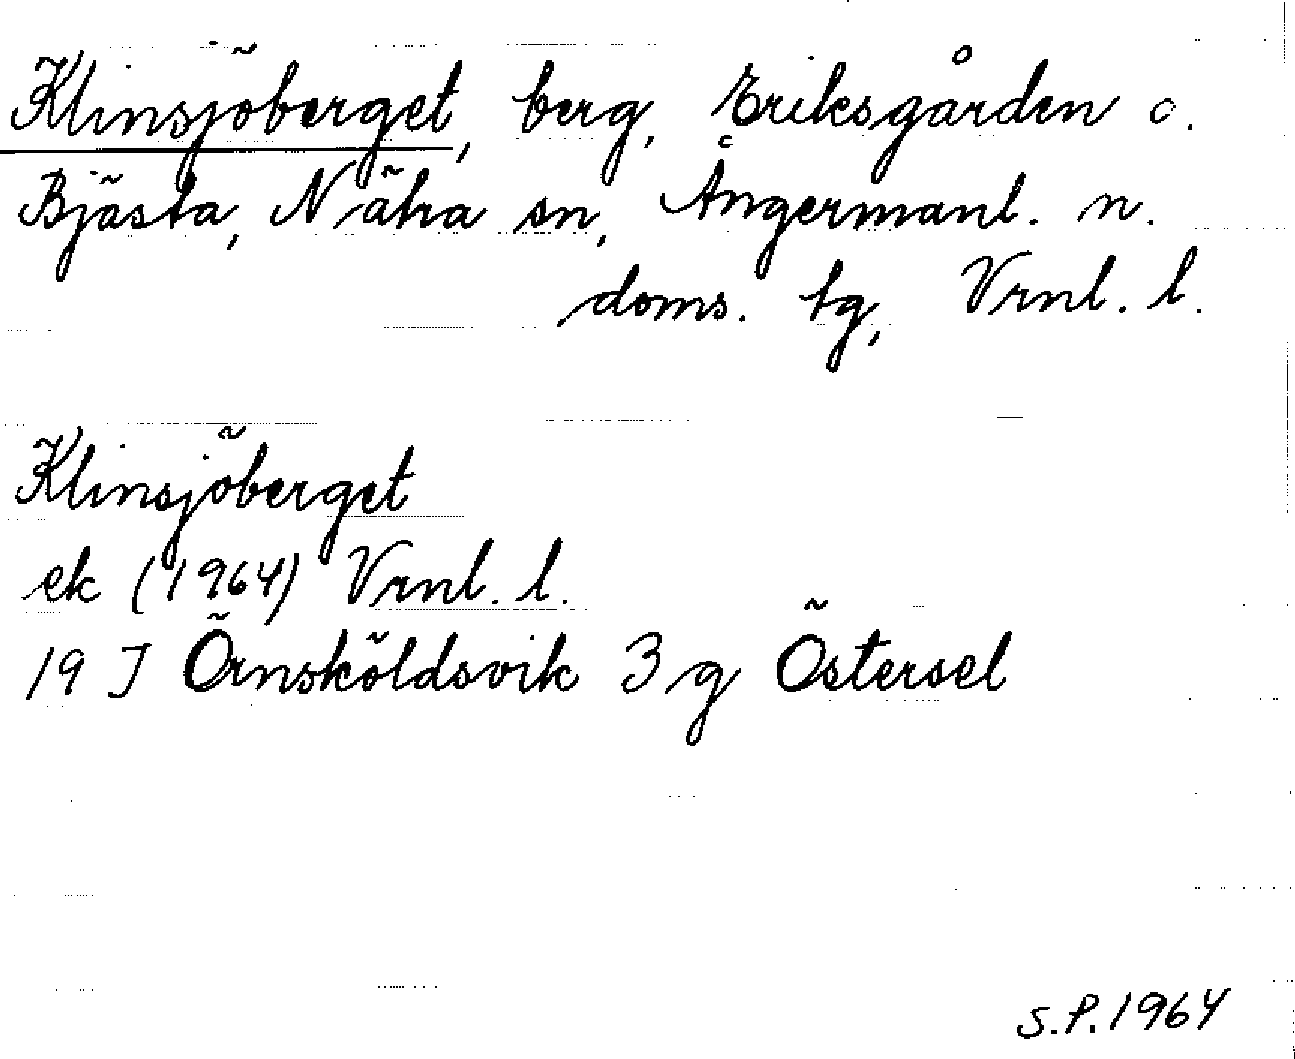 Klinsjöberget, berg, Eriksgården o.
Bjästa, Nätra sn, Ångermanl. n.
doms. tg, Vrnl. l.
Klinsjöberget
ek (1964) Vrnl. l.
19 J Örnsköldsvik 3 g Östersel
S.P. 1964